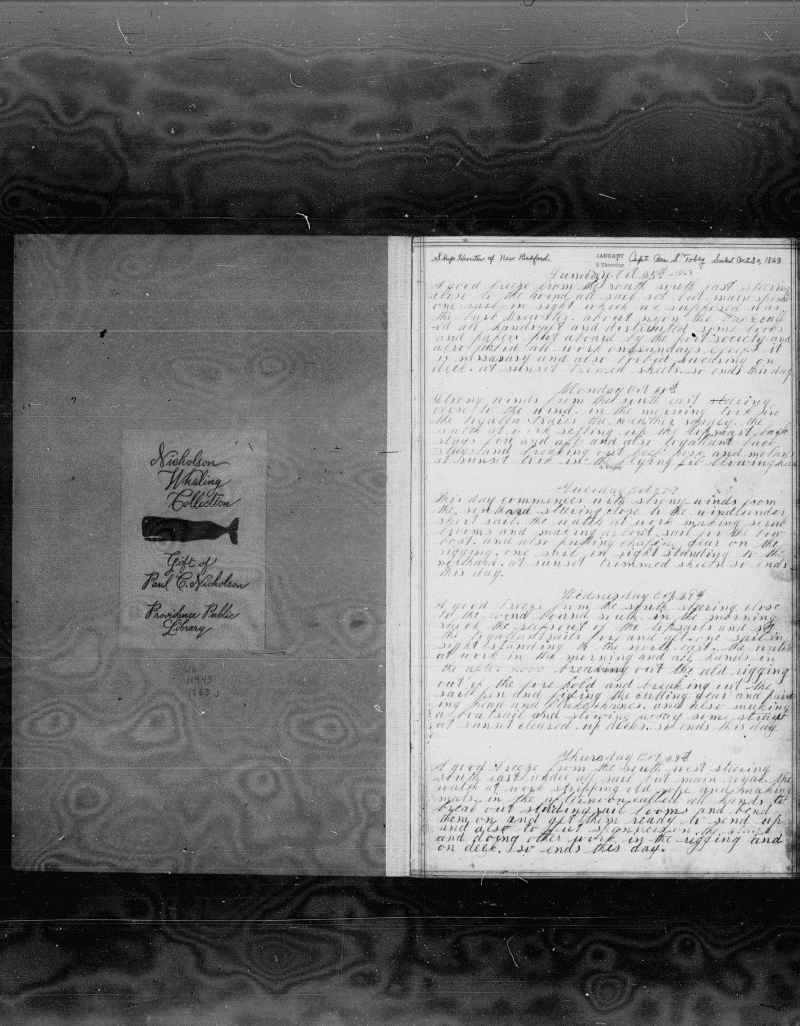 Nicholson
Whaling
Collection
Gift of
Paul C. Nicholson
Providence Public
Library
Wh
H945
1863 J
Ship Hunter of New Bedford
JANUARY
8 Thursday
Capt Asa S Tobey Sailed Oct 20, 1863
Sunday Oct 25th 1863
A good breeze from the south south east steering
close to the wind all sail set but main spencer
one sail in sight which we supposed was
the bark Brewster. about noon the
ed all hands aft and distributed some books
and papers put aboard by the port society and
also forbid all work on sundays except it
is nessasary and also forbid swearing on
deck. at sunset trimed sheets. so ends this day
Monday Oct 26th
Strong winds from the south east steering
close to the wind. in the morning took in
the togallantsails the weather rugey. the
watch at work setting up the topmast back
stays fore and aft and also togallant back
stays and breaking out beef pork and molases
at sunset took in the flying jib blowing hard
Tuesday Oct 27th
This day commences with strong winds from
the southard steering close to the wind under
short sail. the watch at work making scrub
brooms and making a boat sail for the bow
boat. and also putting chafing gear on the
rigging. one sail in sight standing to the
northard. at sunset trimmed sheets so ends
this day.
Wednesday Oct 28th
A good breeze from the south steering close
to the wind bound south. in the morning
shook the reefs out of the topsails and set
the togallantsails fore and aft. one sail in
sight standing to the north east. the watch
at work in the morning and all hands in
the after noon breaking out the old rigging
out of the fore hold and breaking out the
sail pen and fixing the cutting gear and
ing head and fluke chanes. and also making
a boatsail and stowing away some
at sunset cleared up decks. so ends this day
Thursday Oct 29th
A good breeze from the south west steering
south east under all sail but main royal. the
watch at work stripping old rope and making
mats. in the afternoon called all hands to
break out studingsail booms and bend
them on and get them ready to send up
and also to put spanners on the
and doing other work in the rigging and
on deck. so ends this day.